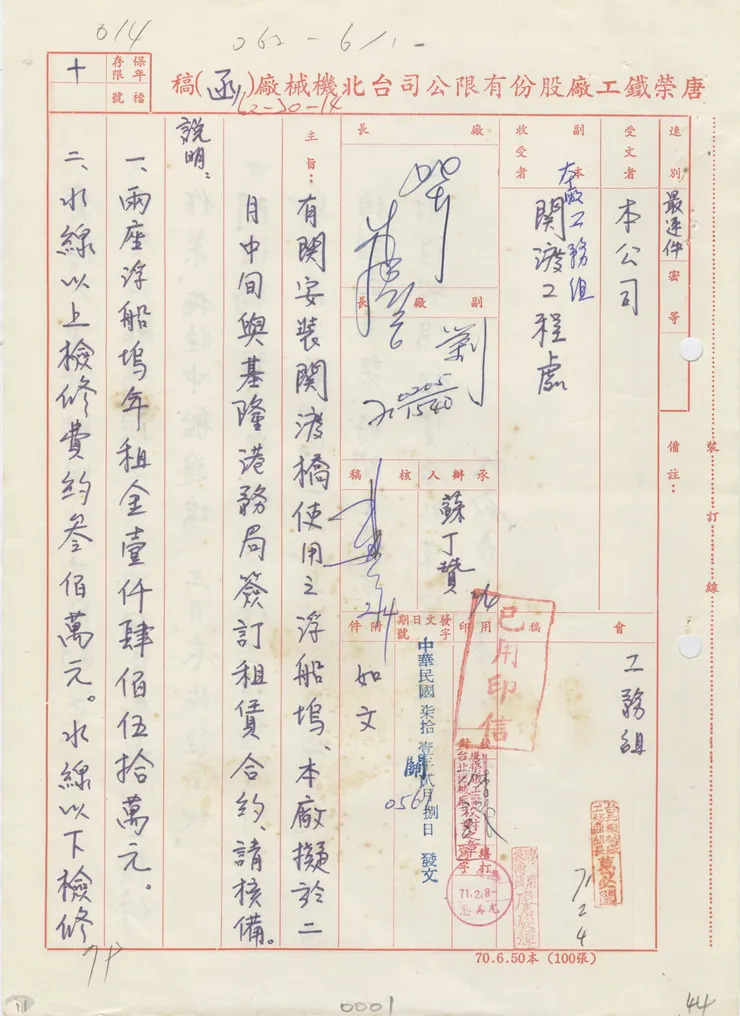 014
062-6/1-
唐榮鐵工廠股份有限公司台北機械廠(函)稿
62-30-14
保存年限
檔號
十
速別
最速件
密等
備註：
裝訂線
受文者
本公司
副本收受者
本廠工務組
關渡工程處
廠長
副廠長
劉
0205
1540
承辦人
蘇丁贊
核稿
2/4
會稿
工務組
71
2
4
用印
已用印信
發文日期字號
中華民國柒拾壹年貳月捌日發文
關
0567
附件
如文
校對
繕打
71.2.8-
主旨：
有關安裝關渡橋使用之浮船塢、本廠擬於二
月中旬與基隆港務局簽訂租賃合約、請核備。
說明：
一、兩座浮船塢年租金壹仟肆佰伍拾萬元。
二、水線以上檢修費約叁佰萬元。水線以下檢修
70.6.50本(100張)
0001
44